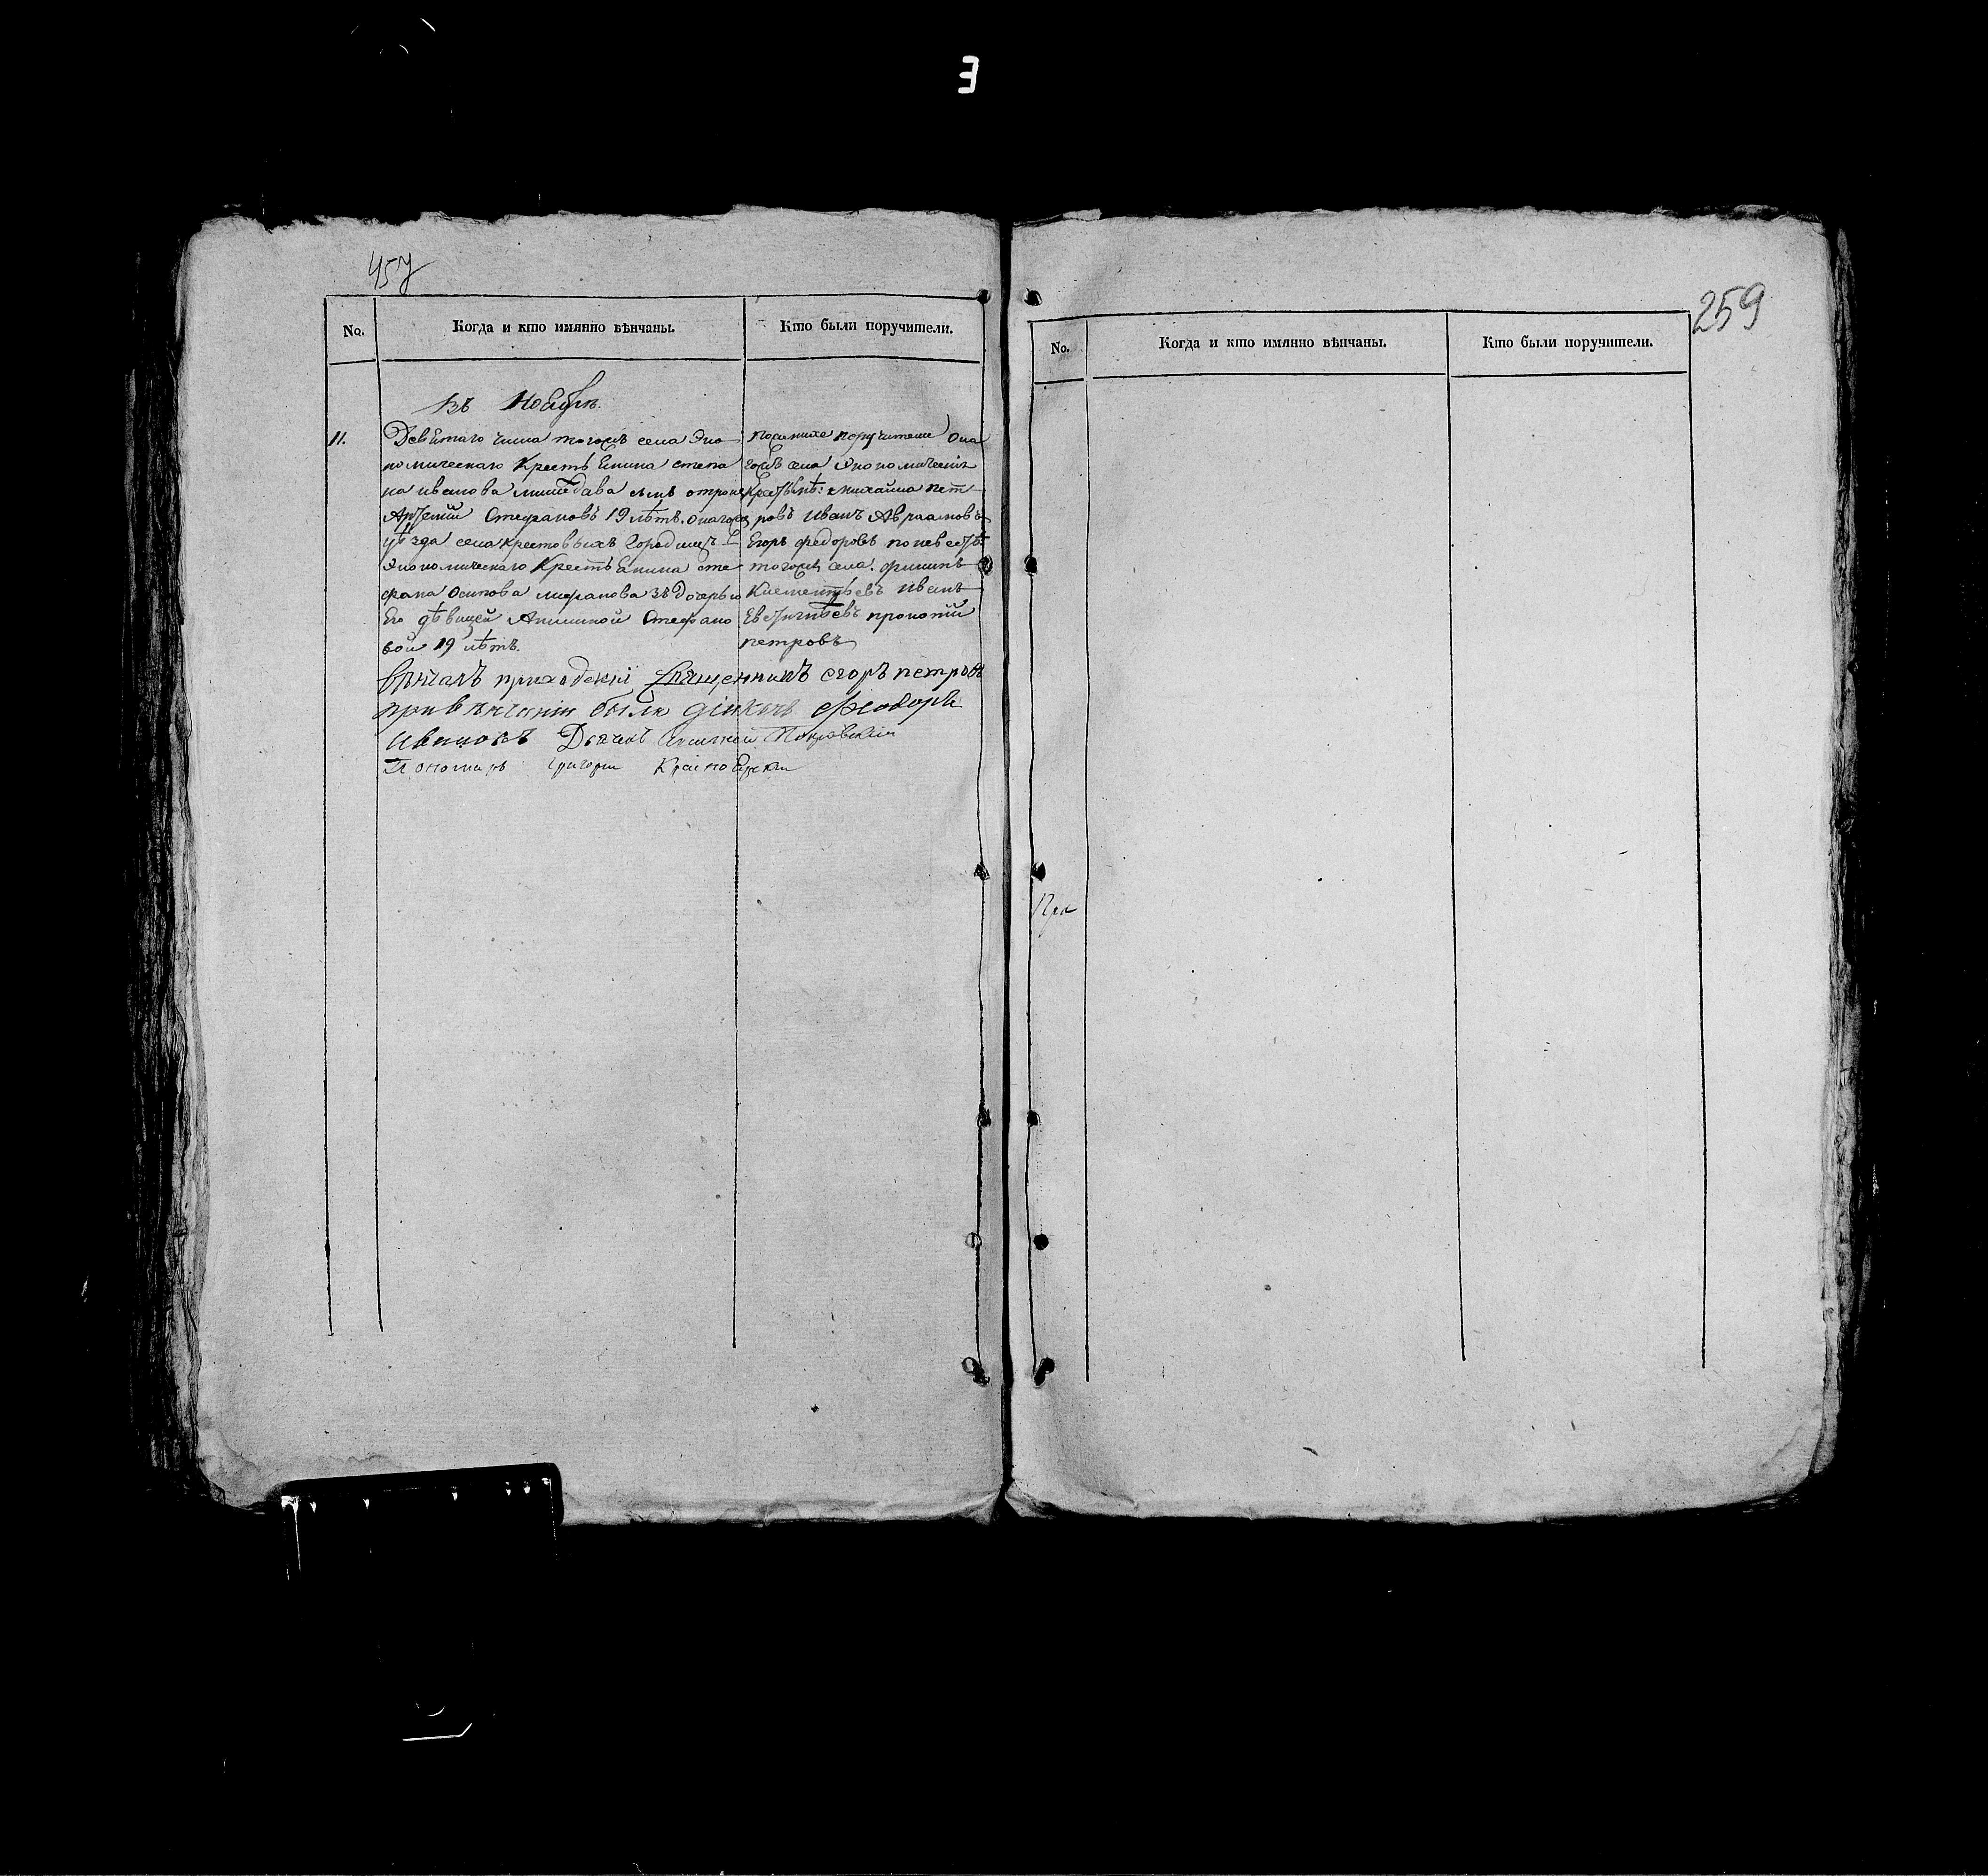 457
No. Когда и кто имянно вѣнчаны. Кто были поручители.
въ Ноябрѣ.
11. Девѣтаго числа тогожъ села Эко
номическаго Крестьѣнина степа
на иванова сынъ отрокъ
Арѣенїй Стефановъ 19 лѣтъ. онагожъ
уѣзда села крестовыхъ Городищъ
Экономическаго Крестьянина сте
фана Осипова зъ дочерью
Его дѣвицей Акилиной Стефано
вой 19 лѣтъ.
по женихе поручители она
гожъ села Экономическїе
Михайла пет
ровъ Иванъ Авраамовъ
Егоръ федоровъ по невесте
тогожъ села. филипъ
Климентьевъ Иванъ
Евстигнѣевъ прокопїй
петровъ
вѣнчалъ приходскїй Священникъ егоръ петровъ
при вѣнчанїи были дїяконъ Феодоръ
Ивановъ Дьячекъ Покровскїй
Пономарь григорїй Красноярскїй
259
No. Когда и кто имянно вѣнчаны. Кто были поручители.
При